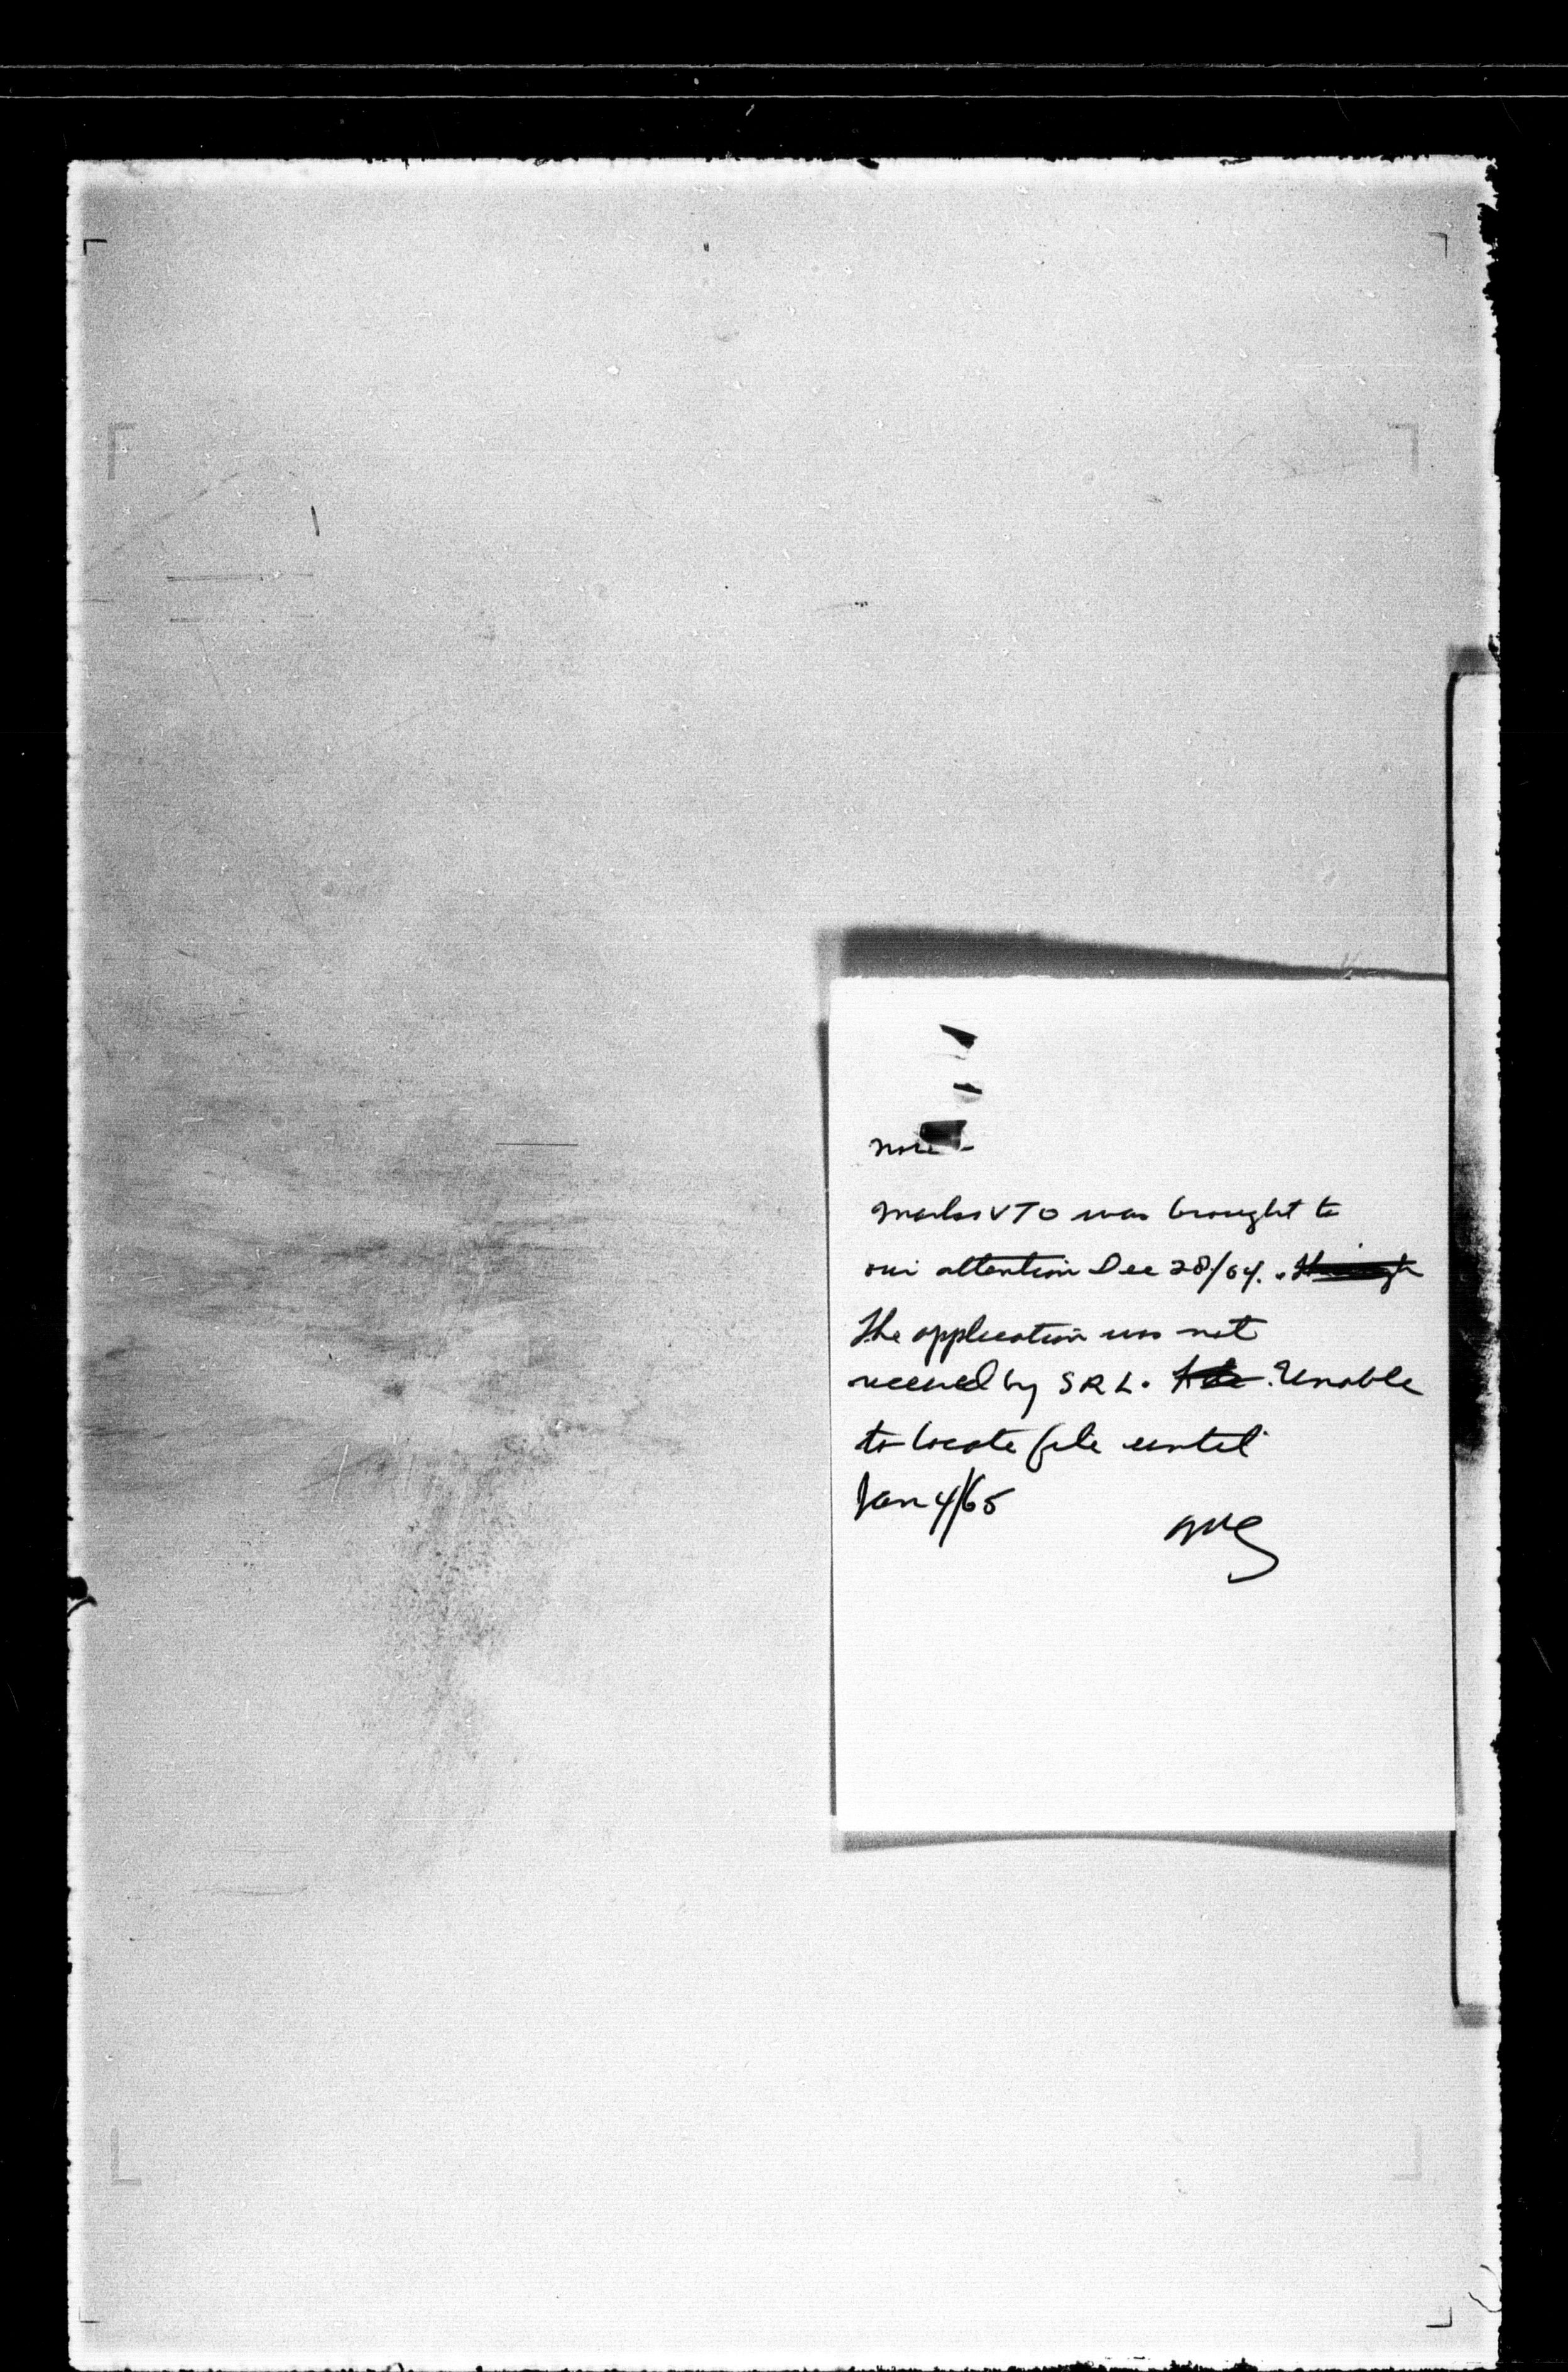 Note -
VTO was brought to
our attention Dec 28/64.
The application was not
received by SRL. Unable
to locate file until
Jan 4/65